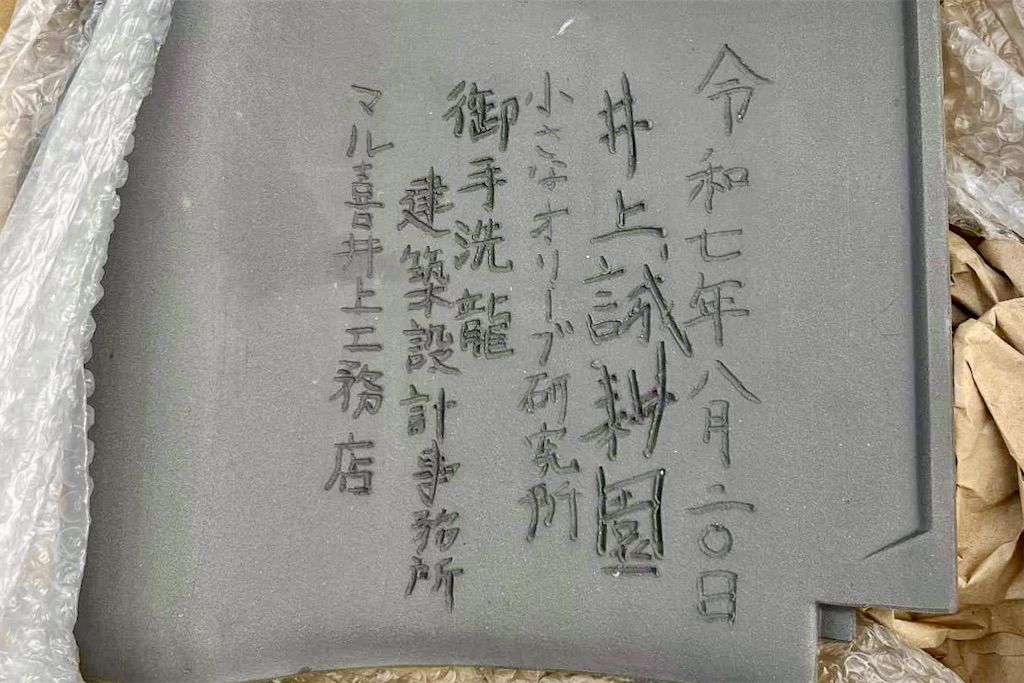 令和七年八月二〇日
井上誠耕園
小さなオリーブ研究所
御手洗龍
建築設計事務所
マル喜井上工務店